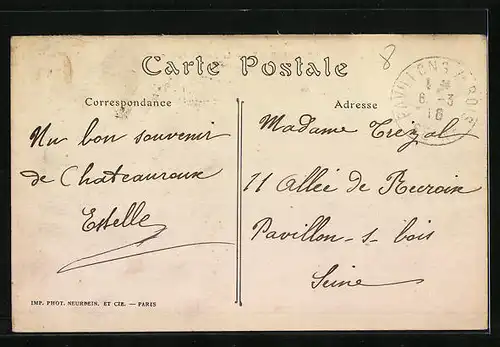 Carte Postale
8
PAVILLONS S/ BOIS
8 - 3
16
Correspondance
Adresse
Un bon souvenir
de Chateauroux
Estelle
Madame Trézal
11 Allée de Rocroix
Pavillon-s-bois
Seine
IMP. PHOT. NEURDEIN. ET CIE. — PARIS